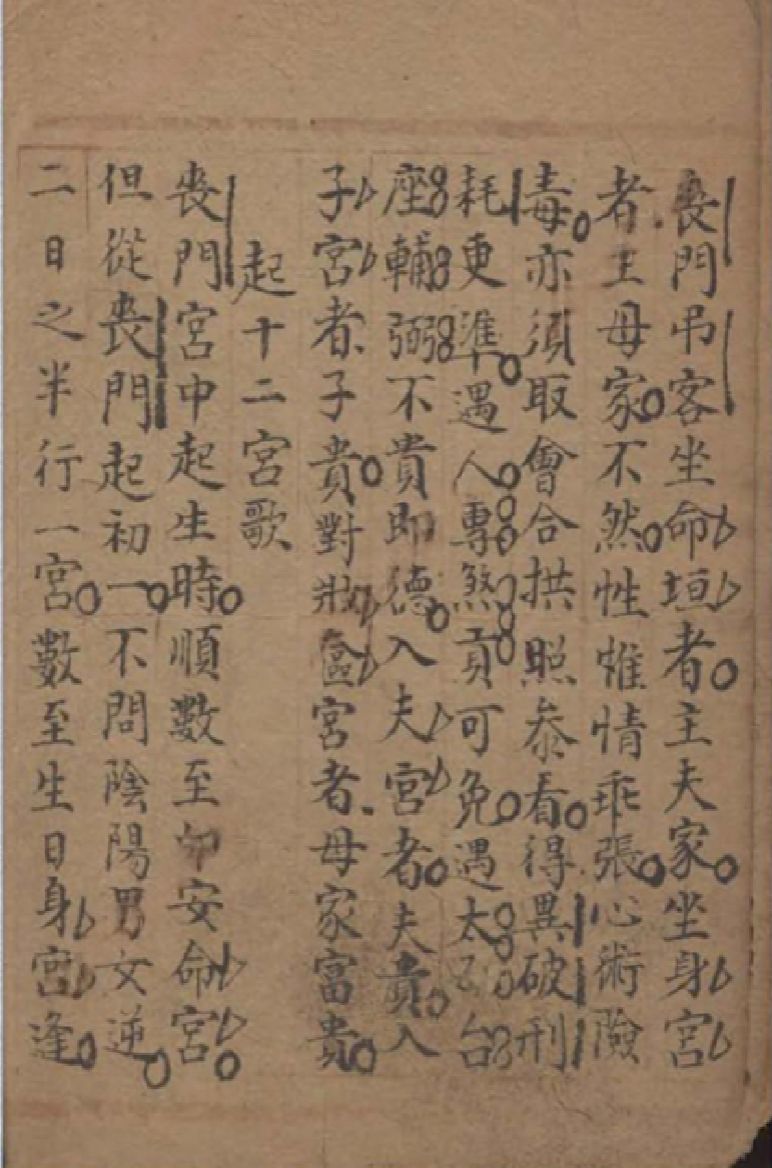 喪門吊客坐命垣者主夫家坐身宮
者主母家不然性惟情乖張心術險
毒亦須取會合拱照叅看得異破刑
耗更準遇人專煞貢可免遇太台
座輔弼不貴即德入夫宮者夫貴入
子宮者子貴對宮者母家富貴
起十二宮歌
喪門宮中起生時順數至卯安命宮
但從喪門起初一不問陰陽男女逆
二日之半行一宮數至生日身宮逢